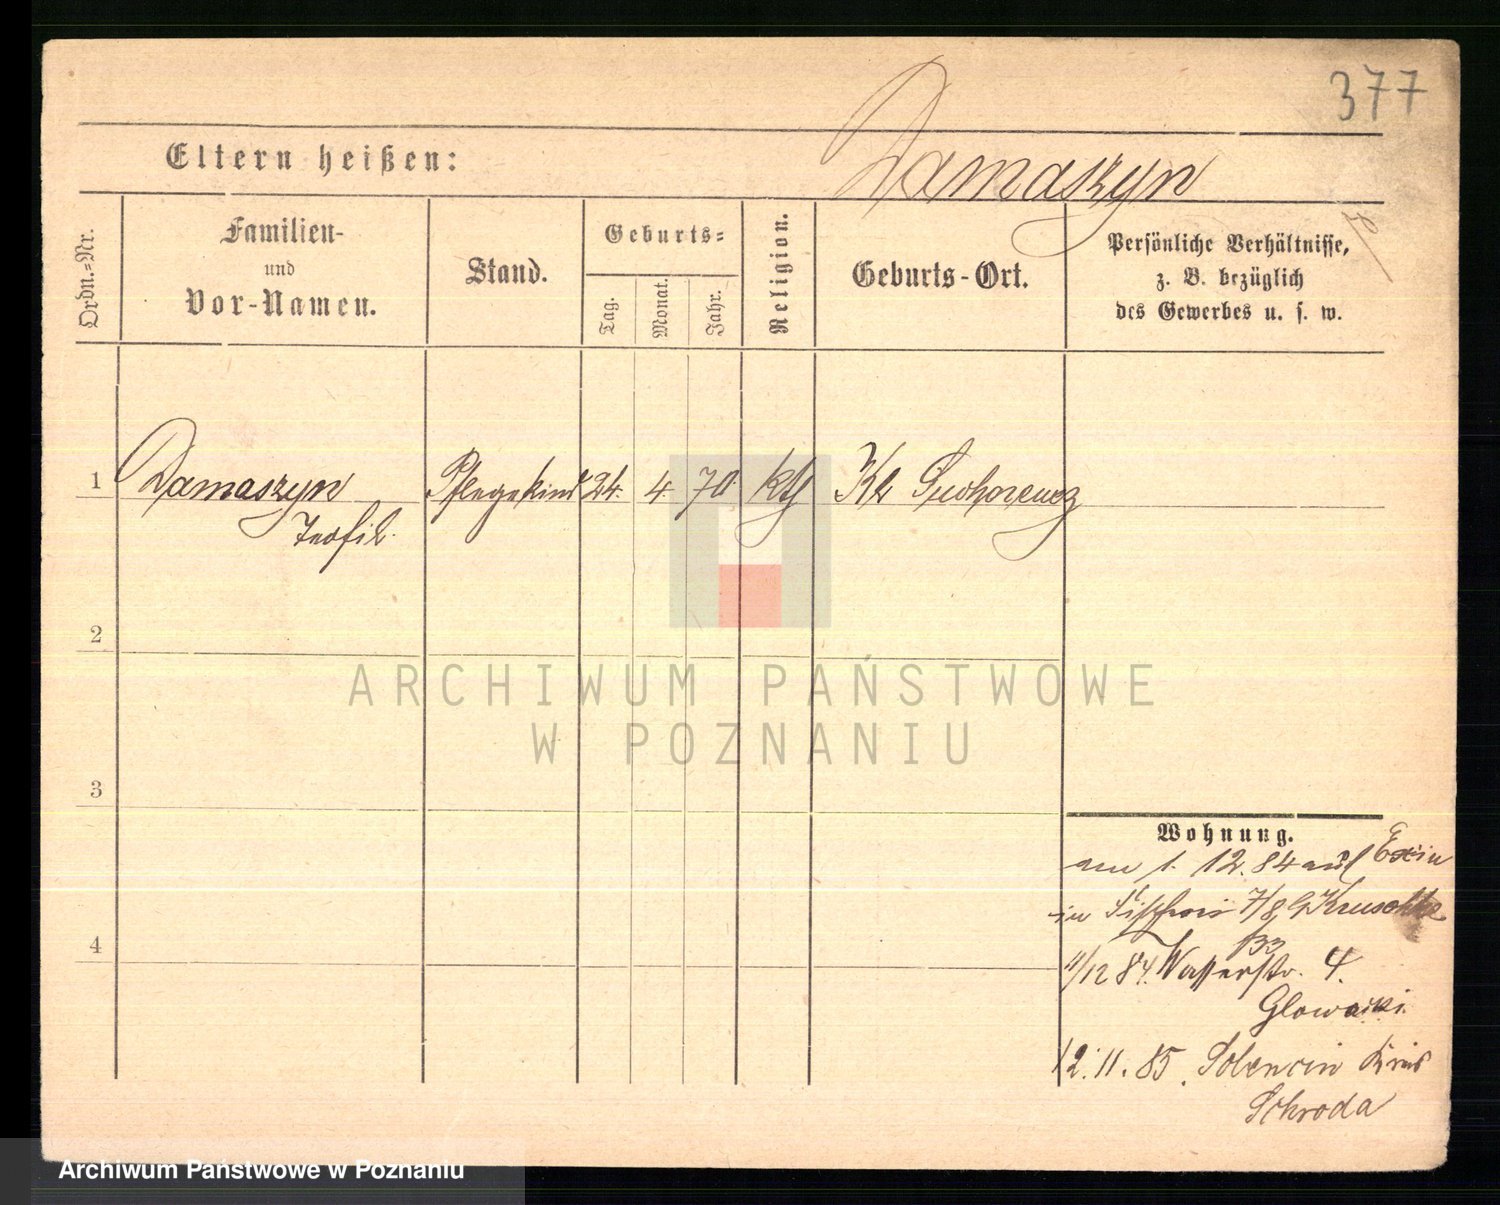 377
Damaszyn
Eltern heißen:
Ordn.-Nr.
Familien-
und
Vor-Namen.
Stand.
Geburts-
Tag.
Monat.
Jahr.
Religion.
Geburts-Ort.
Persönliche Verhältnisse,
z. B. bezüglich
des Gewerbes u. s. w.
1 Damaszyn Pflegekind 24. 4. 70. kth Kl
Teofil.
2
3
4
Wohnung.
am 1. 12. 84 aus Exin
in 7/8 b/Kruschke
133
11/12 84. Wasserstr. 4.
Glowacki.
12. 11. 85. Kreis
Schroda
ARCHIWUM PAŃSTWOWE
W POZNANIU
Archiwum Państwowe w Poznaniu